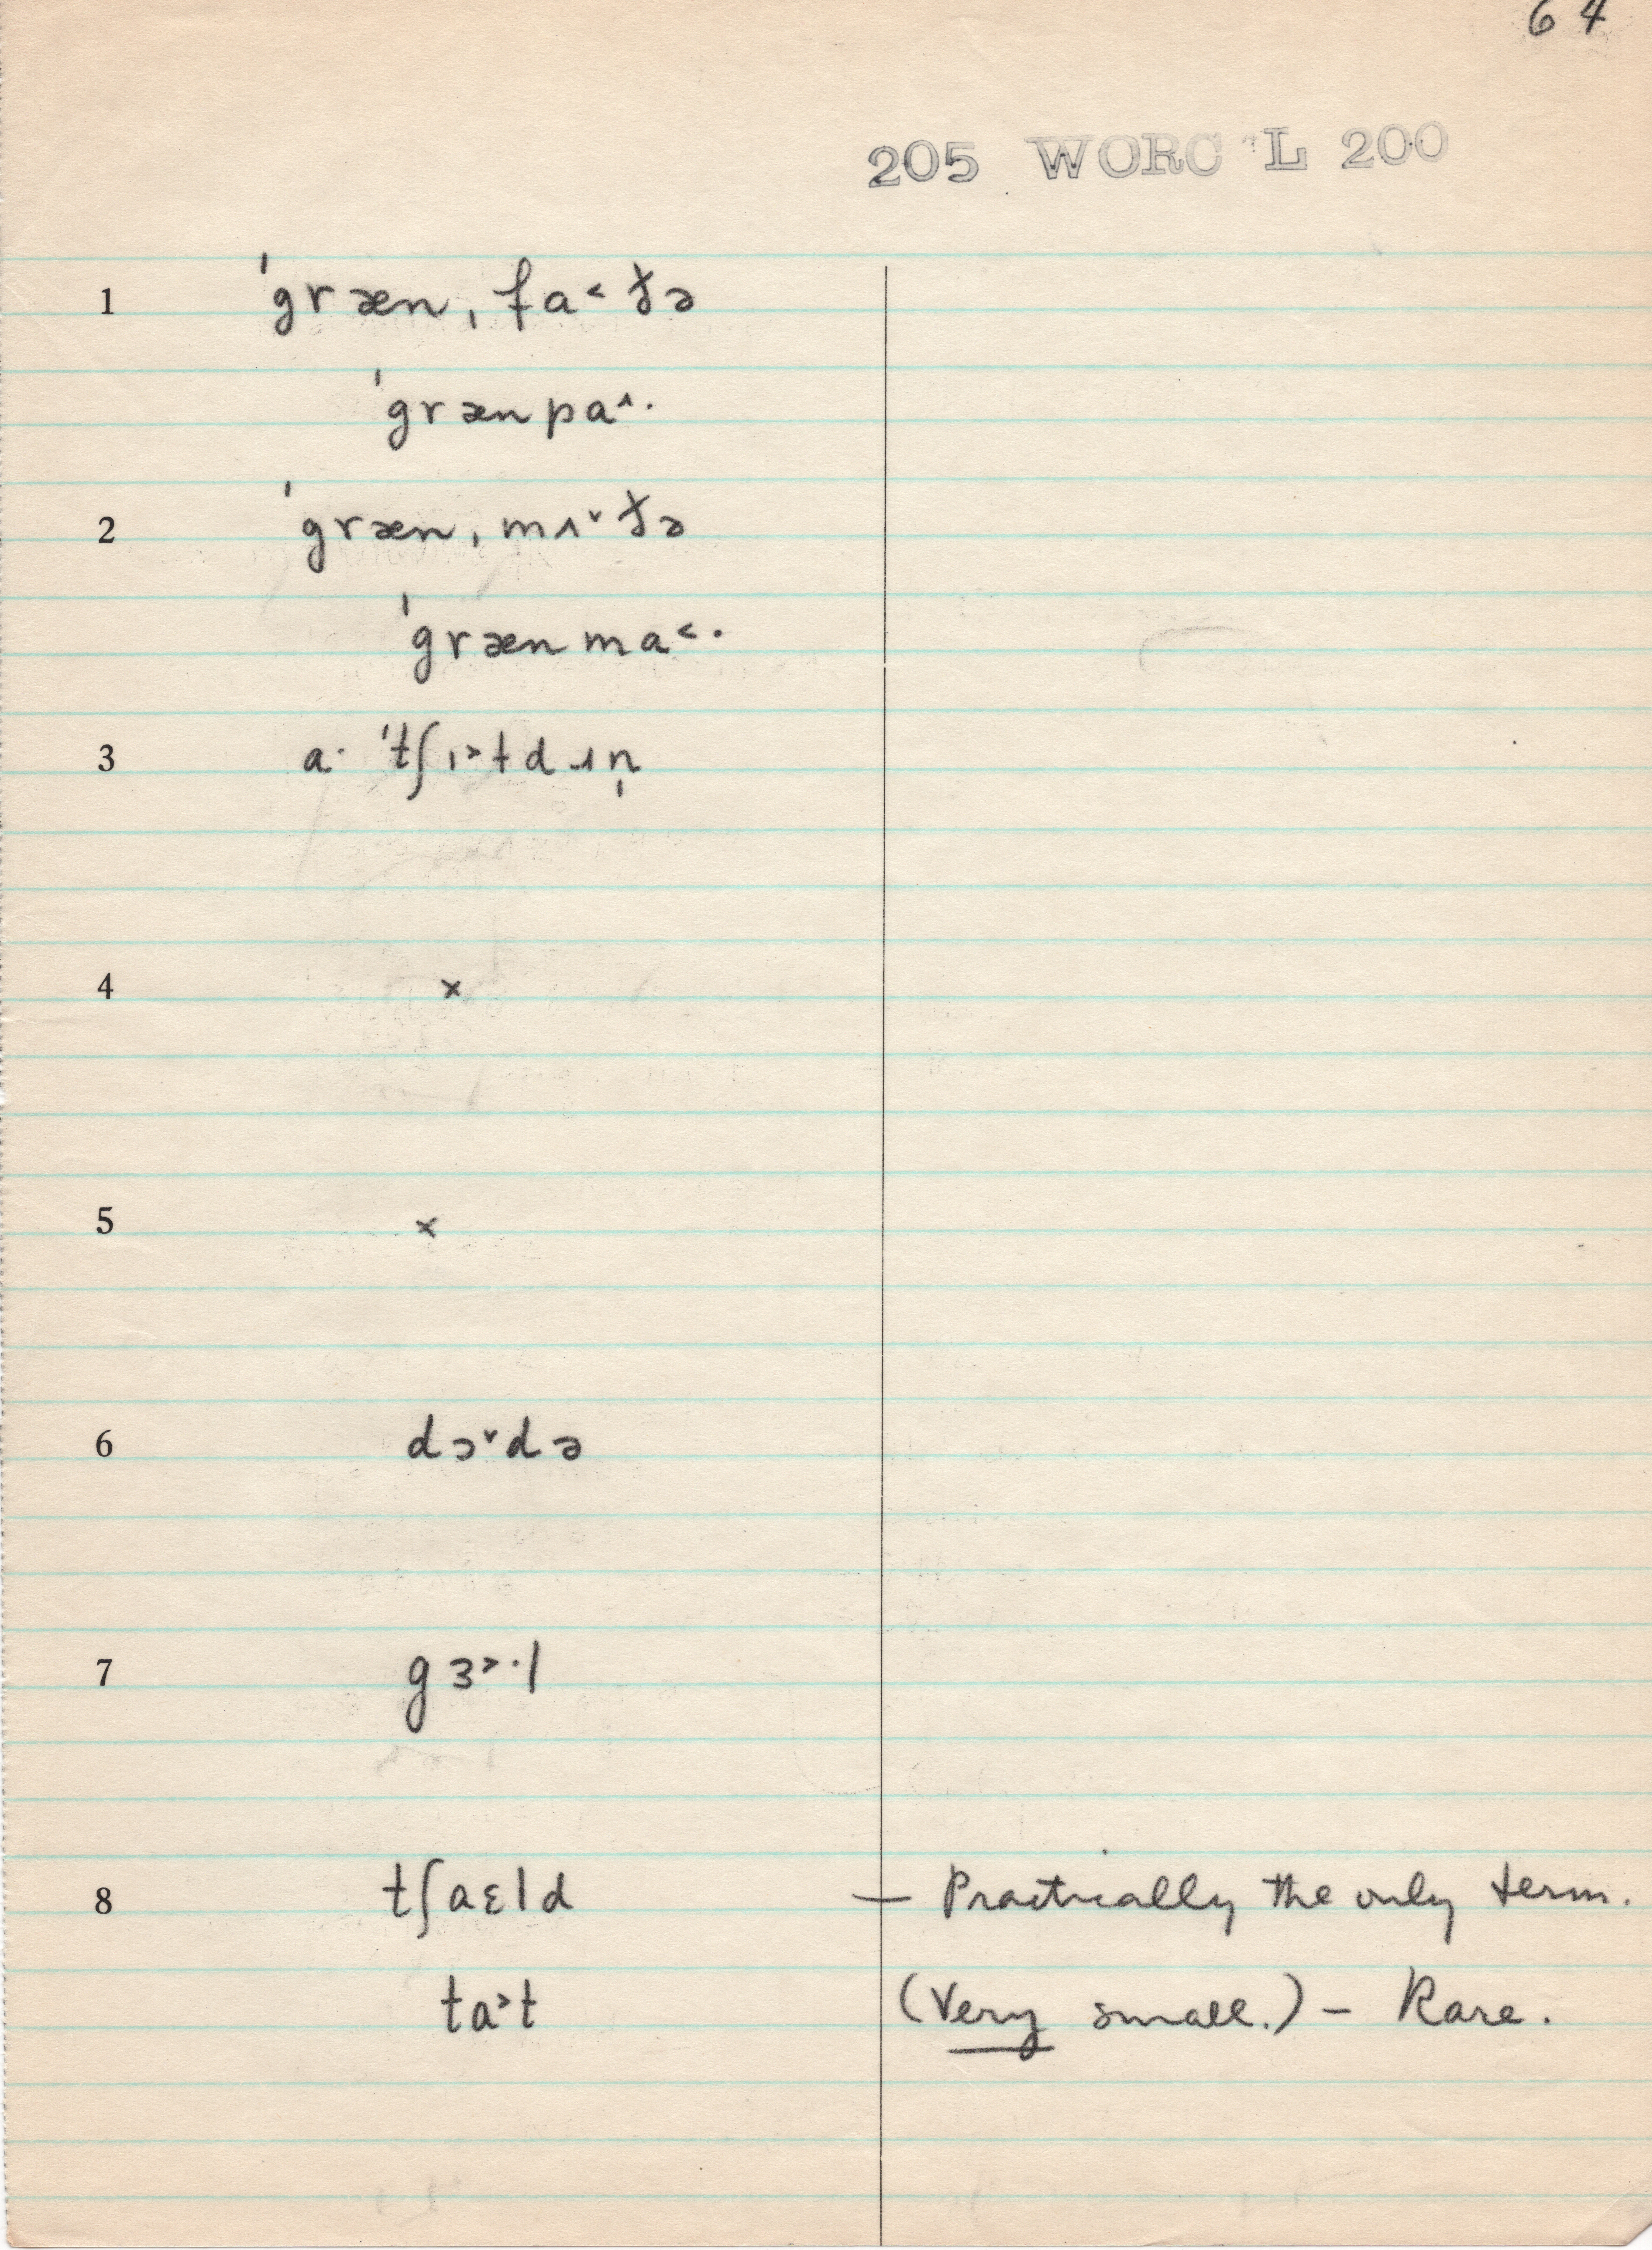 64
205 WORC L 200
1 ˈgræn ˌfa˂ðə
ˈgrænpa˄·
2 ˈgræn ˌmʌ˅ðə
ˈgrænma˂·
3 a· ˈtʃɪ˃tdɹn̩
4 ×
5 ×
6 dɔ˅də
7 gɜ˃·l
8 tʃaɛld — Practically the only term.
ta˃t (Very small.) – Rare.